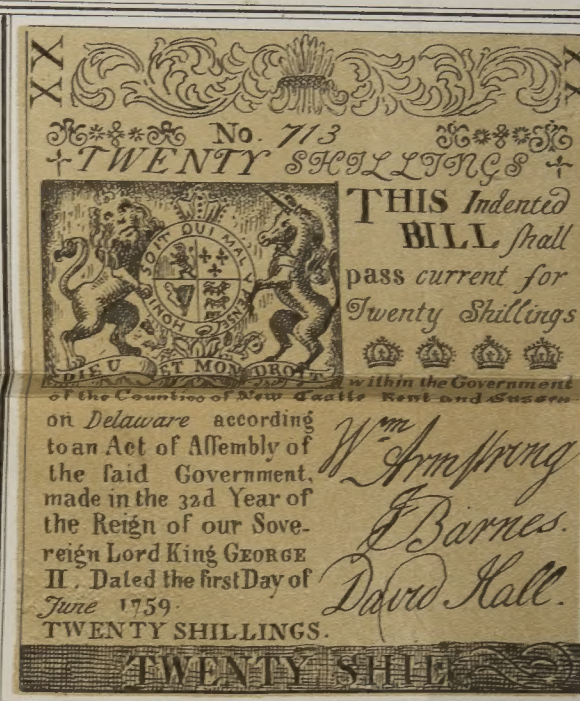 XX XX
No. 713
TWENTY SHILLINGS
THIS Indented
BILL ſhall
pass current for
Twenty Shillings
HONI SOIT QUI MAL Y PENSE
DIEU ET MON DROIT
within the Government
of the Counties of New Castle Kent and Sussex
on Delaware according
to an Act of Aſſembly of
the ſaid Government,
made in the 32d Year of
the Reign of our Sove-
reign Lord King GEORGE
II. Dated the firſt Day of
June 1759.
TWENTY SHILLINGS.
Wm Armſtrong
J Barnes.
David Hall.
TWENTY SHIL